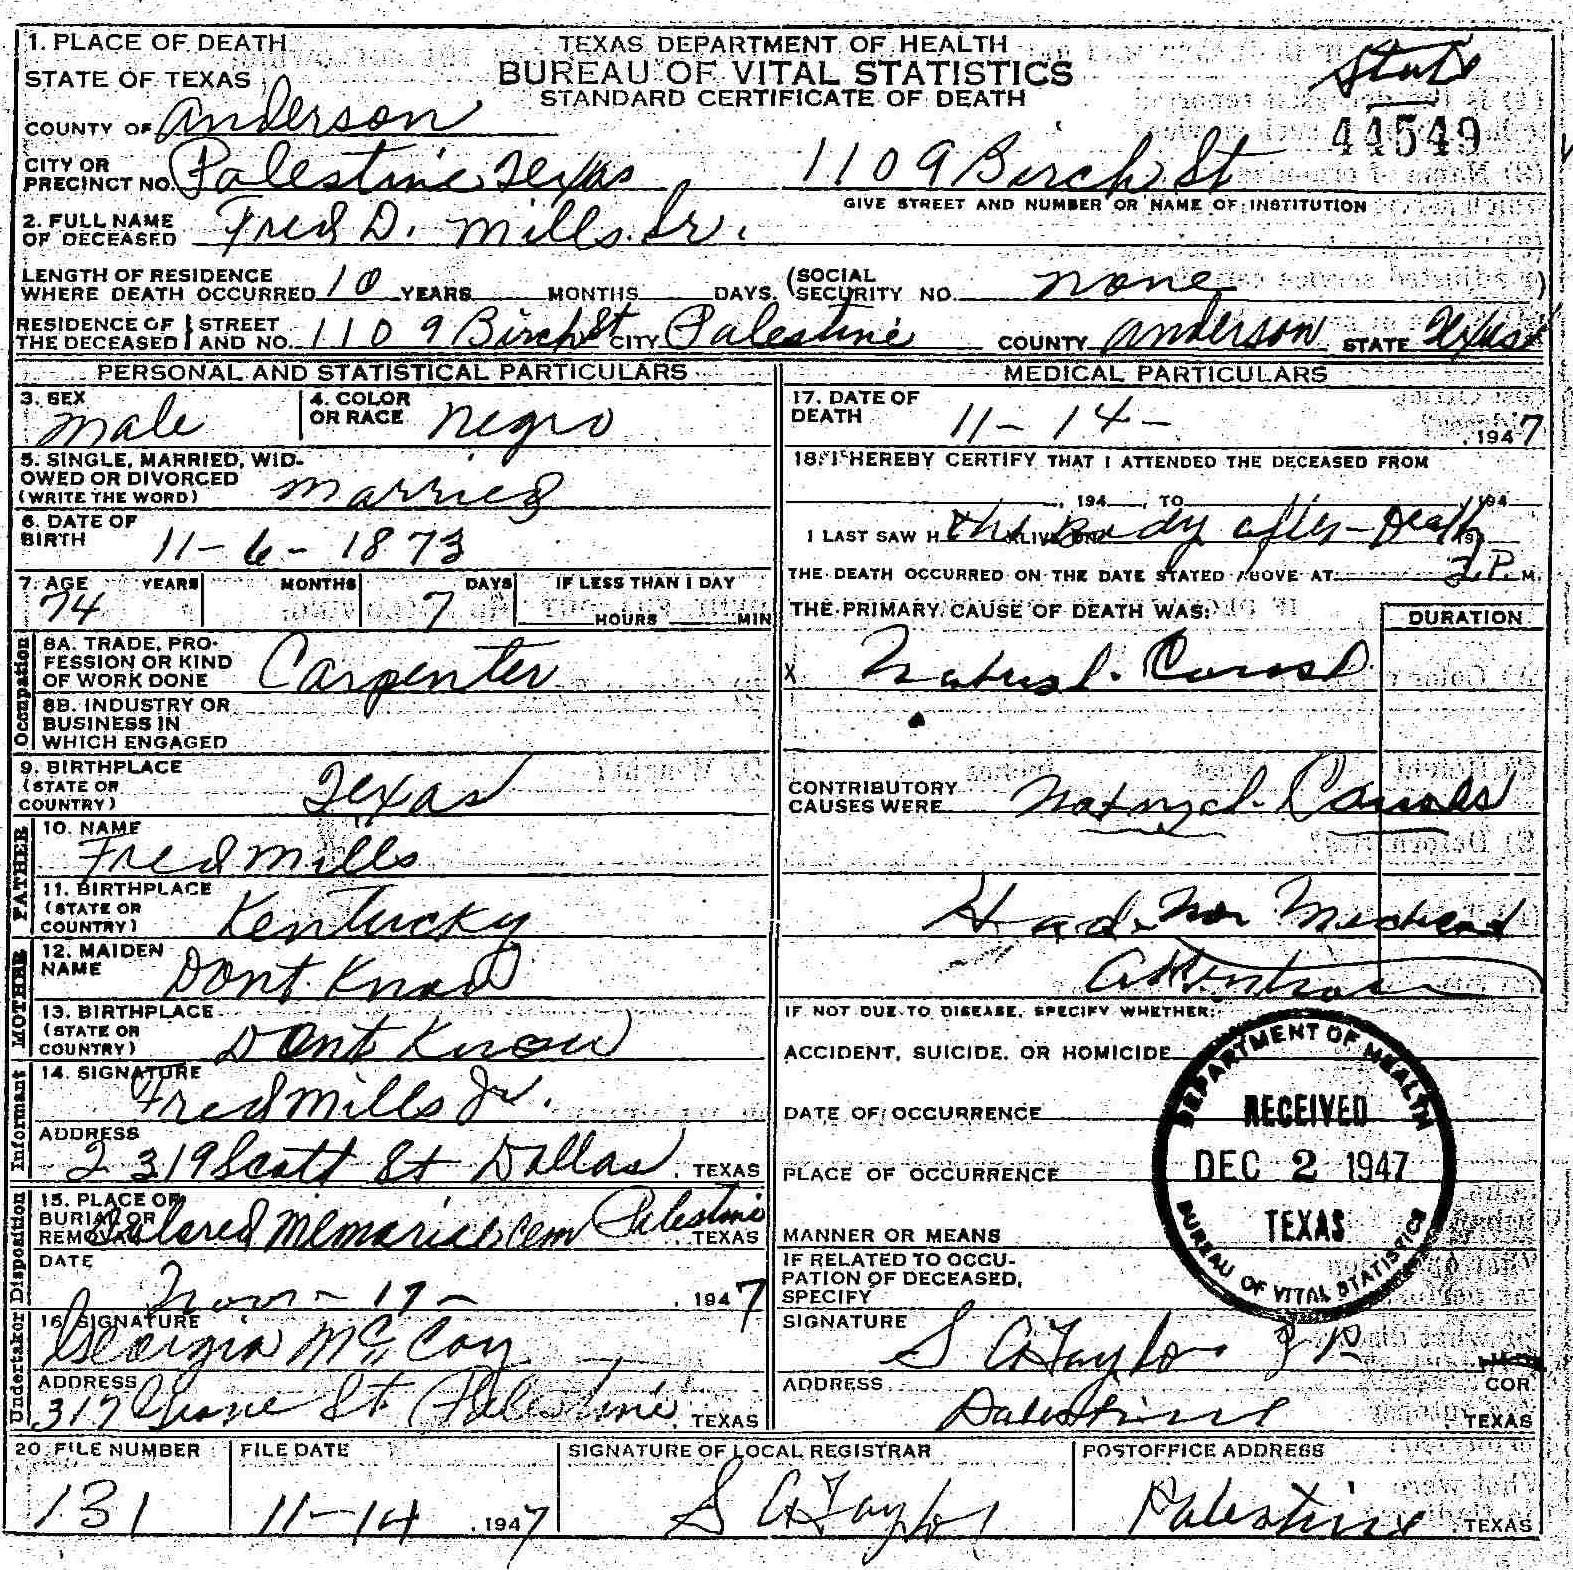 1. PLACE OF DEATH
TEXAS DEPARTMENT OF HEALTH
State
STATE OF TEXAS
BUREAU OF VITAL STATISTICS
STANDARD CERTIFICATE OF DEATH
44549
COUNTY OF Anderson
CITY OR PRECINCT NO. Palestine Texas 1109 Birch St
GIVE STREET AND NUMBER OR NAME OF INSTITUTION
2. FULL NAME OF DECEASED Fred D. Mills. Sr.
LENGTH OF RESIDENCE WHERE DEATH OCCURRED 10 YEARS MONTHS DAYS (SOCIAL SECURITY NO. none )
RESIDENCE OF THE DECEASED STREET AND NO. 1109 Birch St CITY Palestine COUNTY Anderson STATE Texas
PERSONAL AND STATISTICAL PARTICULARS
3. SEX male
4. COLOR OR RACE negro
5. SINGLE, MARRIED, WIDOWED OR DIVORCED (WRITE THE WORD) married
6. DATE OF BIRTH 11-6-1873
7. AGE YEARS MONTHS DAYS IF LESS THAN 1 DAY
74 7 HOURS MIN
Occupation
8A. TRADE, PROFESSION OR KIND OF WORK DONE Carpenter
8B. INDUSTRY OR BUSINESS IN WHICH ENGAGED
9. BIRTHPLACE (STATE OR COUNTRY) Texas
FATHER
10. NAME Fred Mills
11. BIRTHPLACE (STATE OR COUNTRY) Kentucky
MOTHER
12. MAIDEN NAME Dont Know
13. BIRTHPLACE (STATE OR COUNTRY) Dont Know
Informant
14. SIGNATURE Fred Mills Jr.
ADDRESS 2319 Scott St Dallas, TEXAS
Undertaker Disposition
15. PLACE OF BURIAL OR REMOVAL Colored Memorial Cem Palestine TEXAS
DATE Nov-17-1947
16. SIGNATURE Georgia McCoy
ADDRESS 317 St. Palestine, TEXAS
MEDICAL PARTICULARS
17. DATE OF DEATH 11-14-, 1947
18. I HEREBY CERTIFY THAT I ATTENDED THE DECEASED FROM
, 194 , TO 194
I LAST SAW H ALIVE ON the Body after-Death
THE DEATH OCCURRED ON THE DATE STATED ABOVE AT P. M.
THE PRIMARY CAUSE OF DEATH WAS: DURATION
X Natural.
CONTRIBUTORY CAUSES WERE Natural. Causes
Had Medical
Attention
IF NOT DUE TO DISEASE, SPECIFY WHETHER:
ACCIDENT, SUICIDE, OR HOMICIDE
DATE OF OCCURRENCE
PLACE OF OCCURRENCE
MANNER OR MEANS
IF RELATED TO OCCUPATION OF DECEASED, SPECIFY
SIGNATURE S A Taylor
ADDRESS COR
Palestine TEXAS
DEPARTMENT OF HEALTH
RECEIVED
DEC 2 1947
TEXAS
BUREAU OF VITAL STATISTICS
20. FILE NUMBER FILE DATE SIGNATURE OF LOCAL REGISTRAR POSTOFFICE ADDRESS
131 11-14, 1947 S A Taylor Palestine, TEXAS